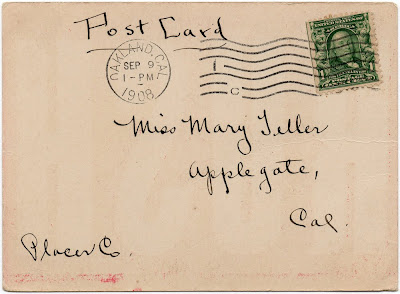 Post Card
OAKLAND, CAL
SEP 9
1-PM
1908
1
C
UNITED STATES OF
AMERICA
Miss Mary Teller
Applegate,
Cal.
Placer Co.